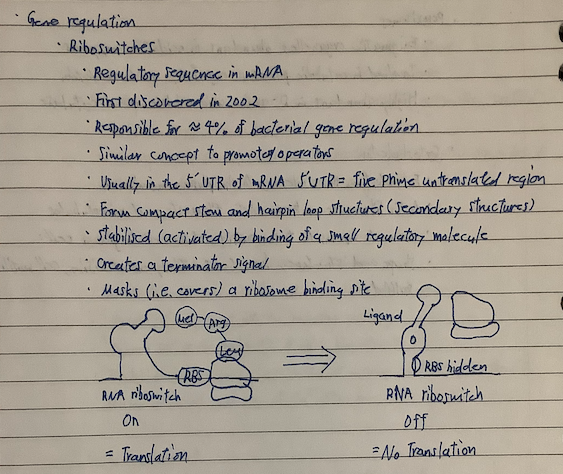 · Gene regulation
· Riboswitches
· Regulatory sequence in mRNA
· First discovered in 2002
· Responsible for ≈ 4% of bacterial gene regulation
· Similar concept to promoter/operators
· Usually in the 5' UTR of mRNA 5'UTR = five prime untranslated region
· Form compact stem and hairpin loop structures (secondary structures)
· Stabilised (activated) by binding of a small regulatory molecule
· Creates a terminator signal
· Masks (i.e. covers) a ribosome binding site
Met Arg Leu
RBS
Ligand
RBS hidden
RNA riboswitch
On
= Translation
RNA riboswitch
Off
= No Translation